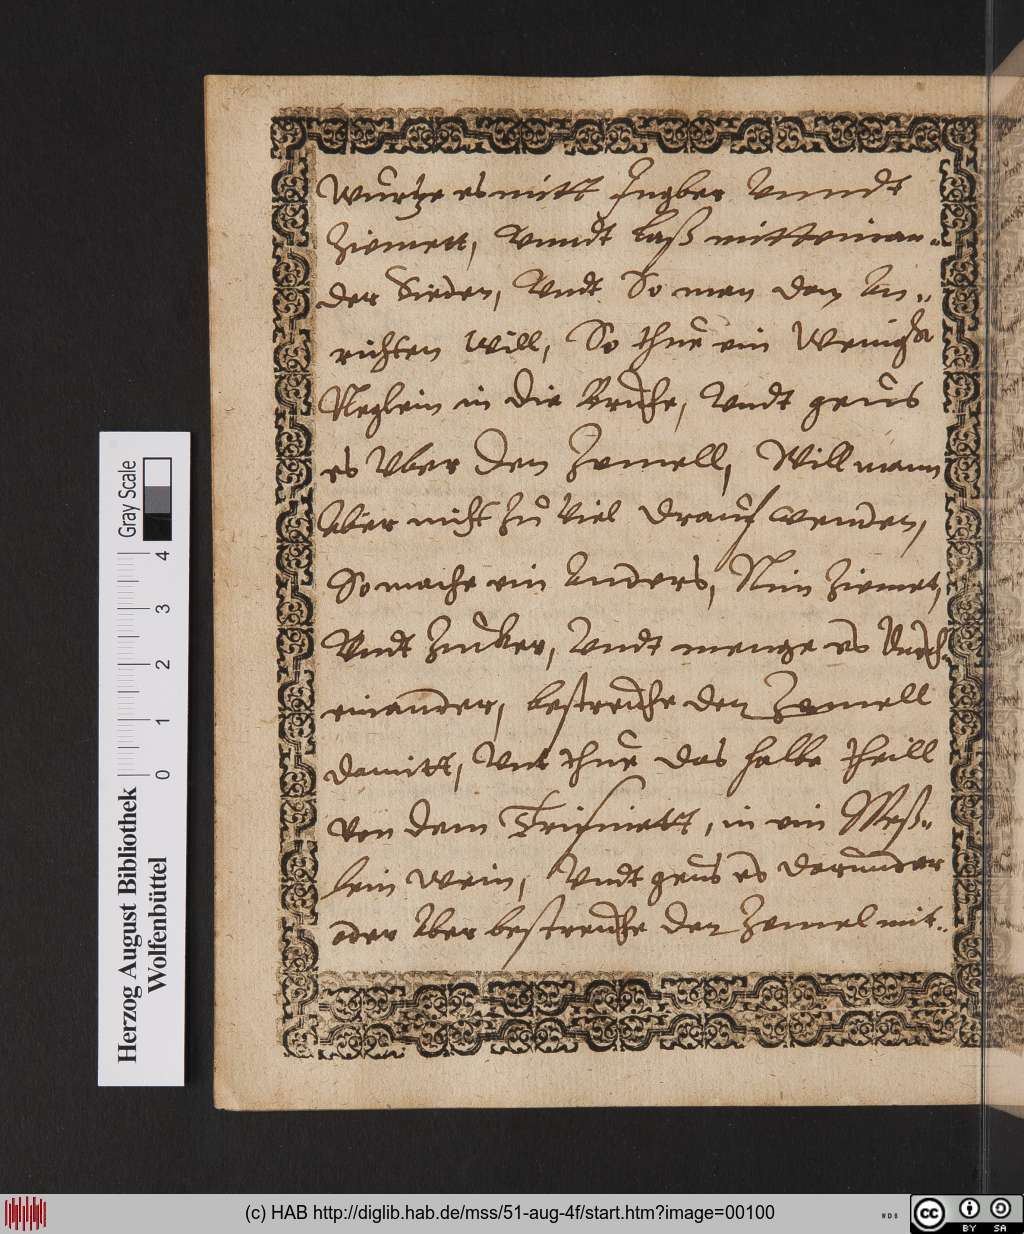 Wurtze es mitt Ingber Vnndt
Ziemett, Vnndt laß mitteinan¬
der Sieden, Vndt So man den An¬
richten will, So thue ein Wenig
Neglein in die Bruhe, Vndt geus
es Vber den Zemell, Will mann
Aber nicht zu Viel drauf wenden,
So mache ein Anders, Nim Ziemet,
Vndt Zucker, Vndt menge es durch
einander, bestreiche den Zemell
damitt, Vnt thue das halbe theill
von dem Trisinett, in ein Meß¬
lein Wein, Vndt geus es darunder
oder Aber bestreiche den Zemel mit¬
Gray Scale
4
3
2
1
0
Herzog August Bibliothek
Wolfenbüttel
(c) HAB http://diglib.hab.de/mss/51-aug-4f/start.htm?image=00100
WDB
cc
BY SA